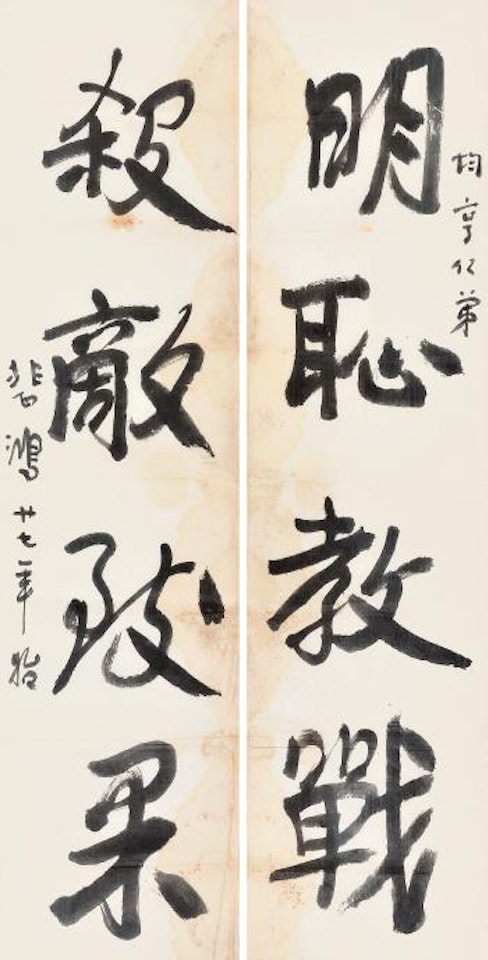 均亨仁弟
明恥教戰
殺敵致果
悲鴻廿七年貽